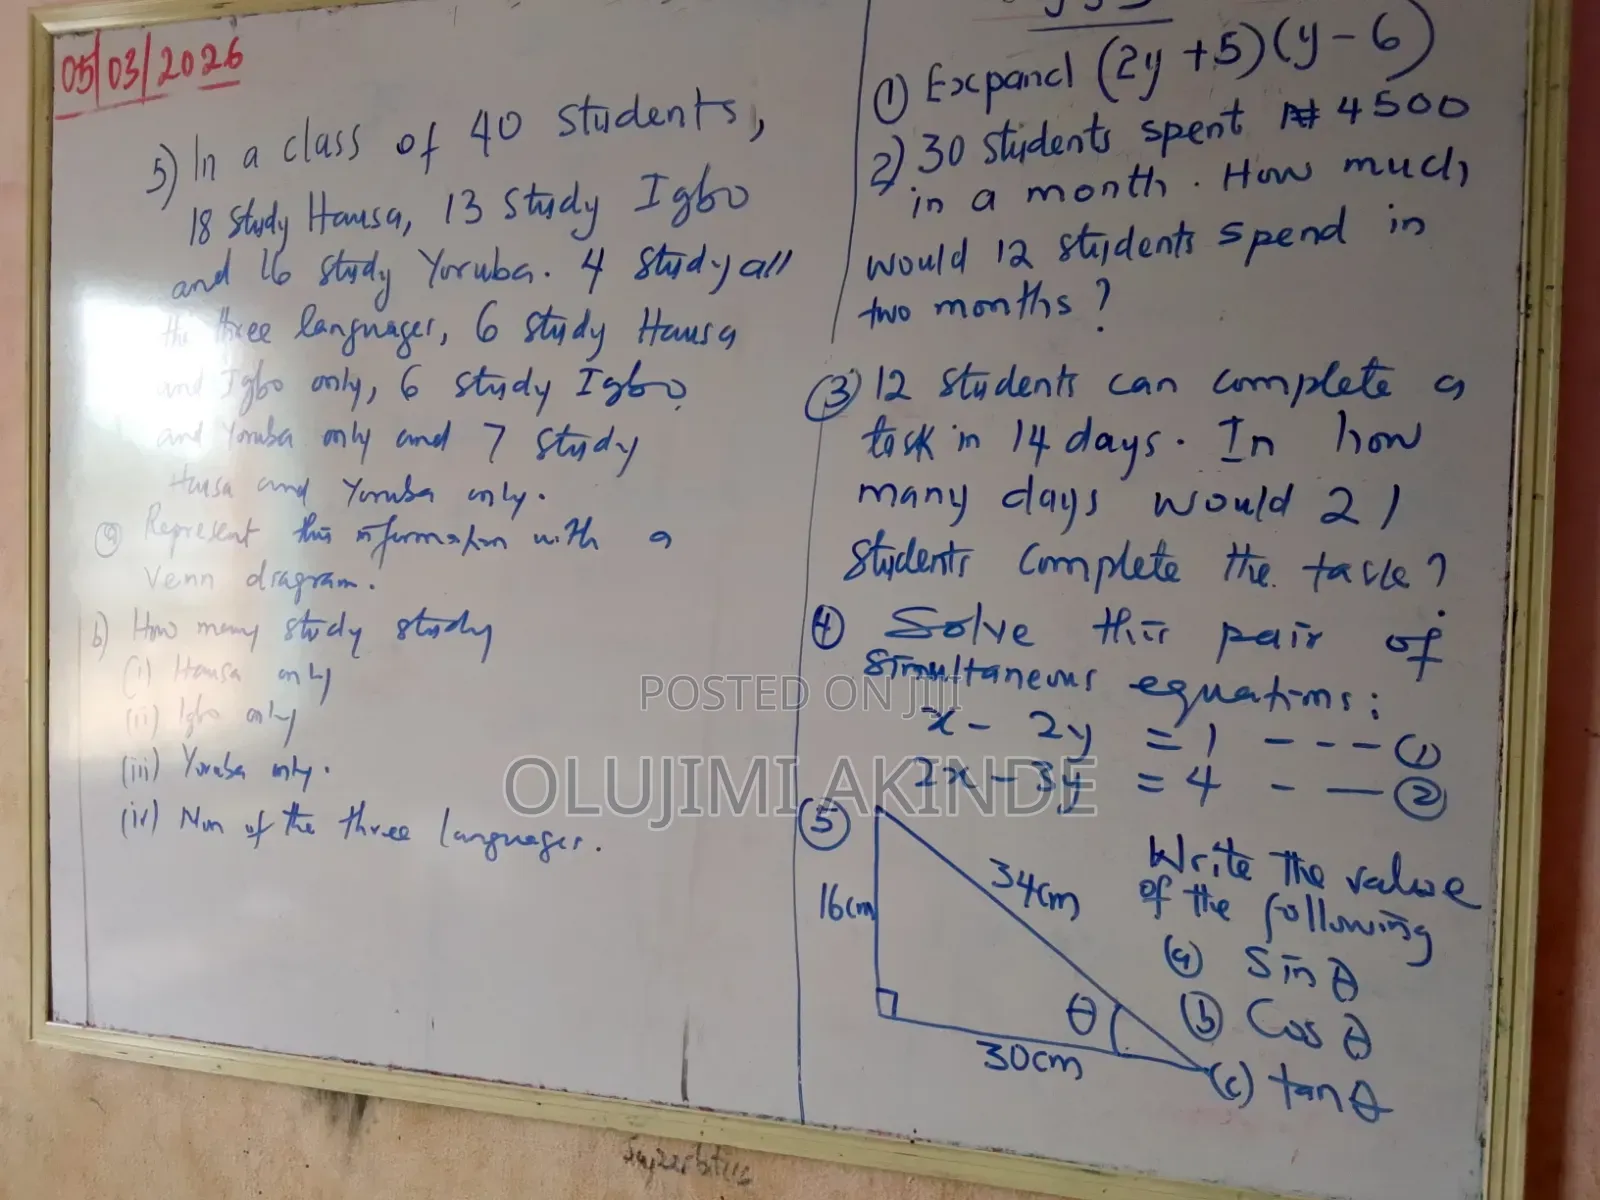 05/03/2026
5) In a class of 40 students,
18 study Hausa, 13 study Igbo
and 16 study Yoruba. 4 study all
the three languages, 6 study Hausa
and Igbo only, 6 study Igbo
and Yoruba only and 7 study
Hausa and Yoruba only.
(a) Represent this information with a
Venn diagram.
b) How many study study
(i) Hausa only
(ii) Igbo only
(iii) Yoruba only.
(iv) Non of the three languages.
(1) Expand (2y + 5)(y - 6)
2) 30 students spent ₦4500
in a month. How much
would 12 students spend in
two months?
(3) 12 students can complete a
task in 14 days. In how
many days would 21
students complete the task?
(4) Solve this pair of
simultaneous equations:
x - 2y = 1 --- (1)
2x - 3y = 4 - — (2)
(5)
16cm
34cm
θ
30cm
Write the value
of the following
(a) Sin θ
(b) Cos θ
(c) tan θ
POSTED ON JIJI
OLUJIMI AKINDE